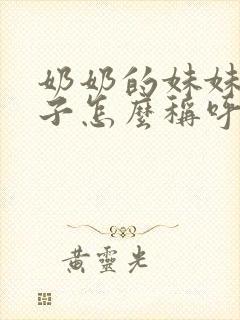 奶奶的妹妹
子怎麼稱呼
黃靈光